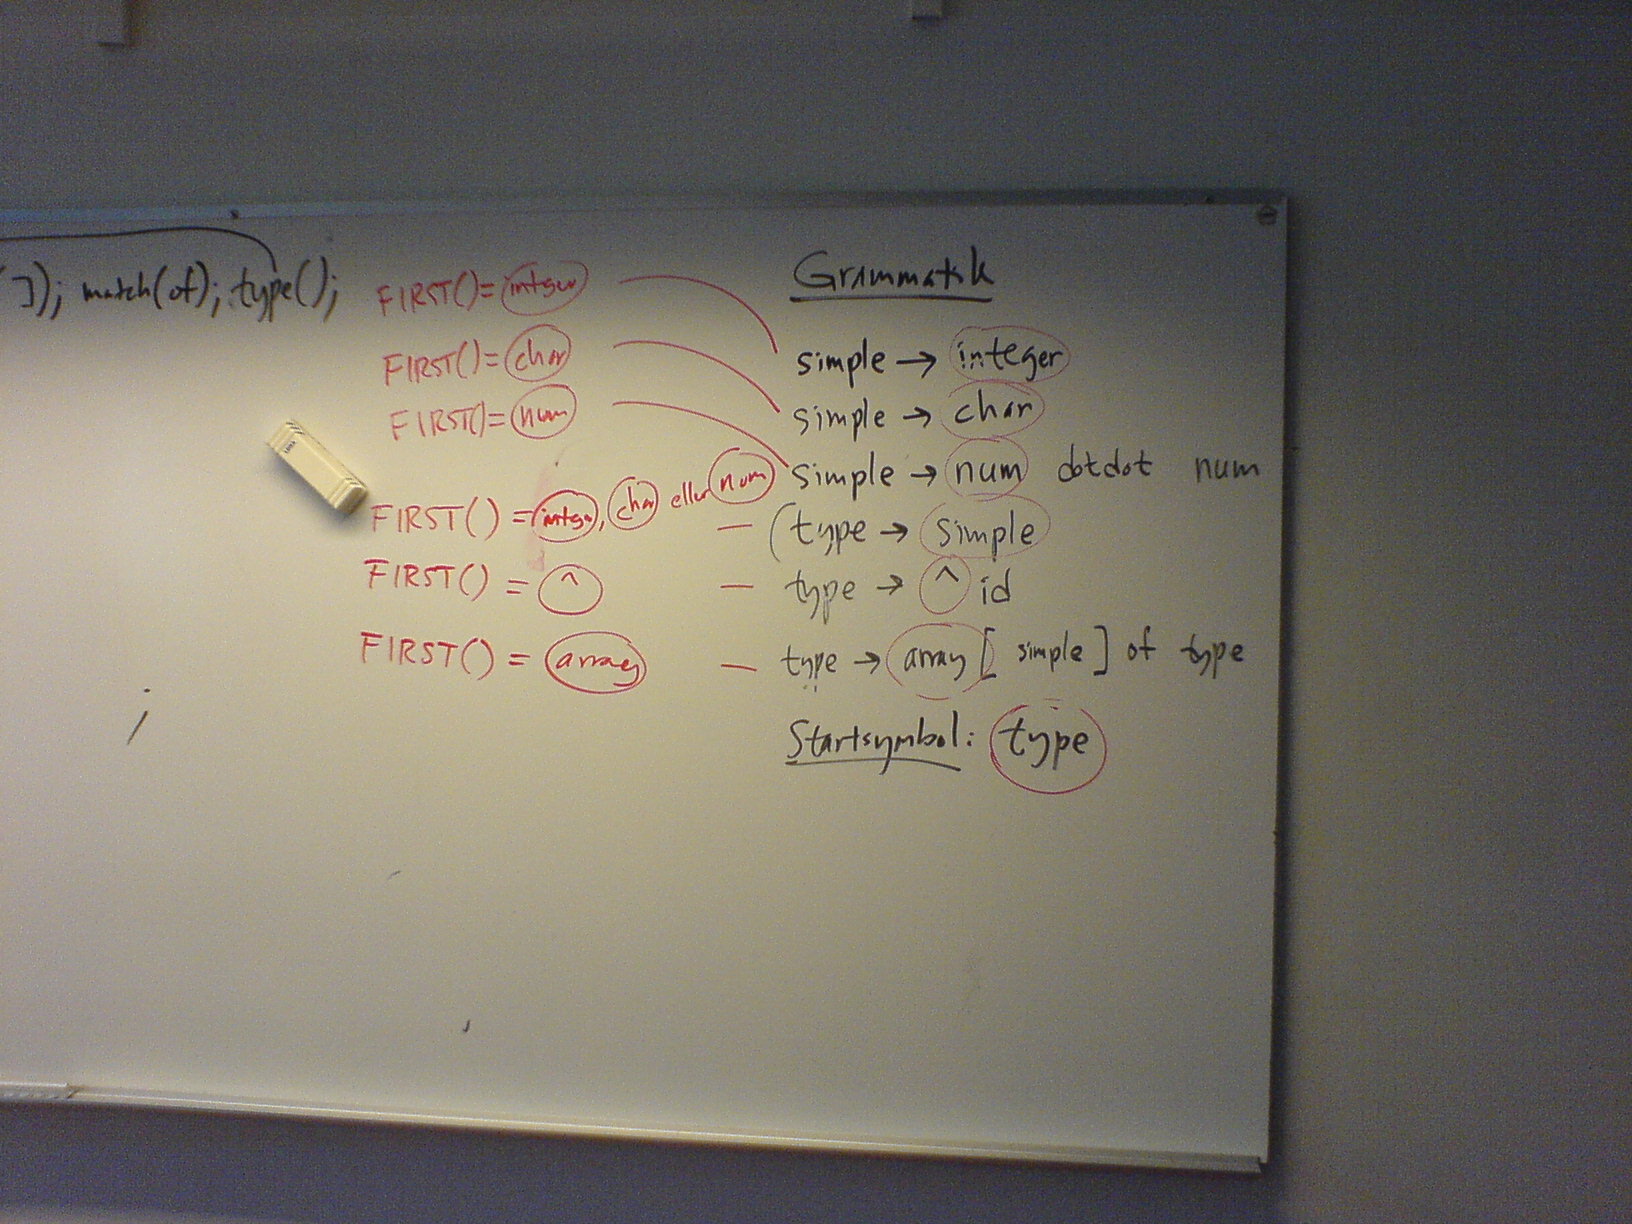 ]); match(of); type();
FIRST()= integer
FIRST()= char
FIRST()= num
FIRST() = integer, char eller num
FIRST() = ^
FIRST() = array
Grammatik
simple → integer
simple → char
simple → num dotdot num
type → simple
type → ^ id
type → array [ simple ] of type
Startsymbol: type